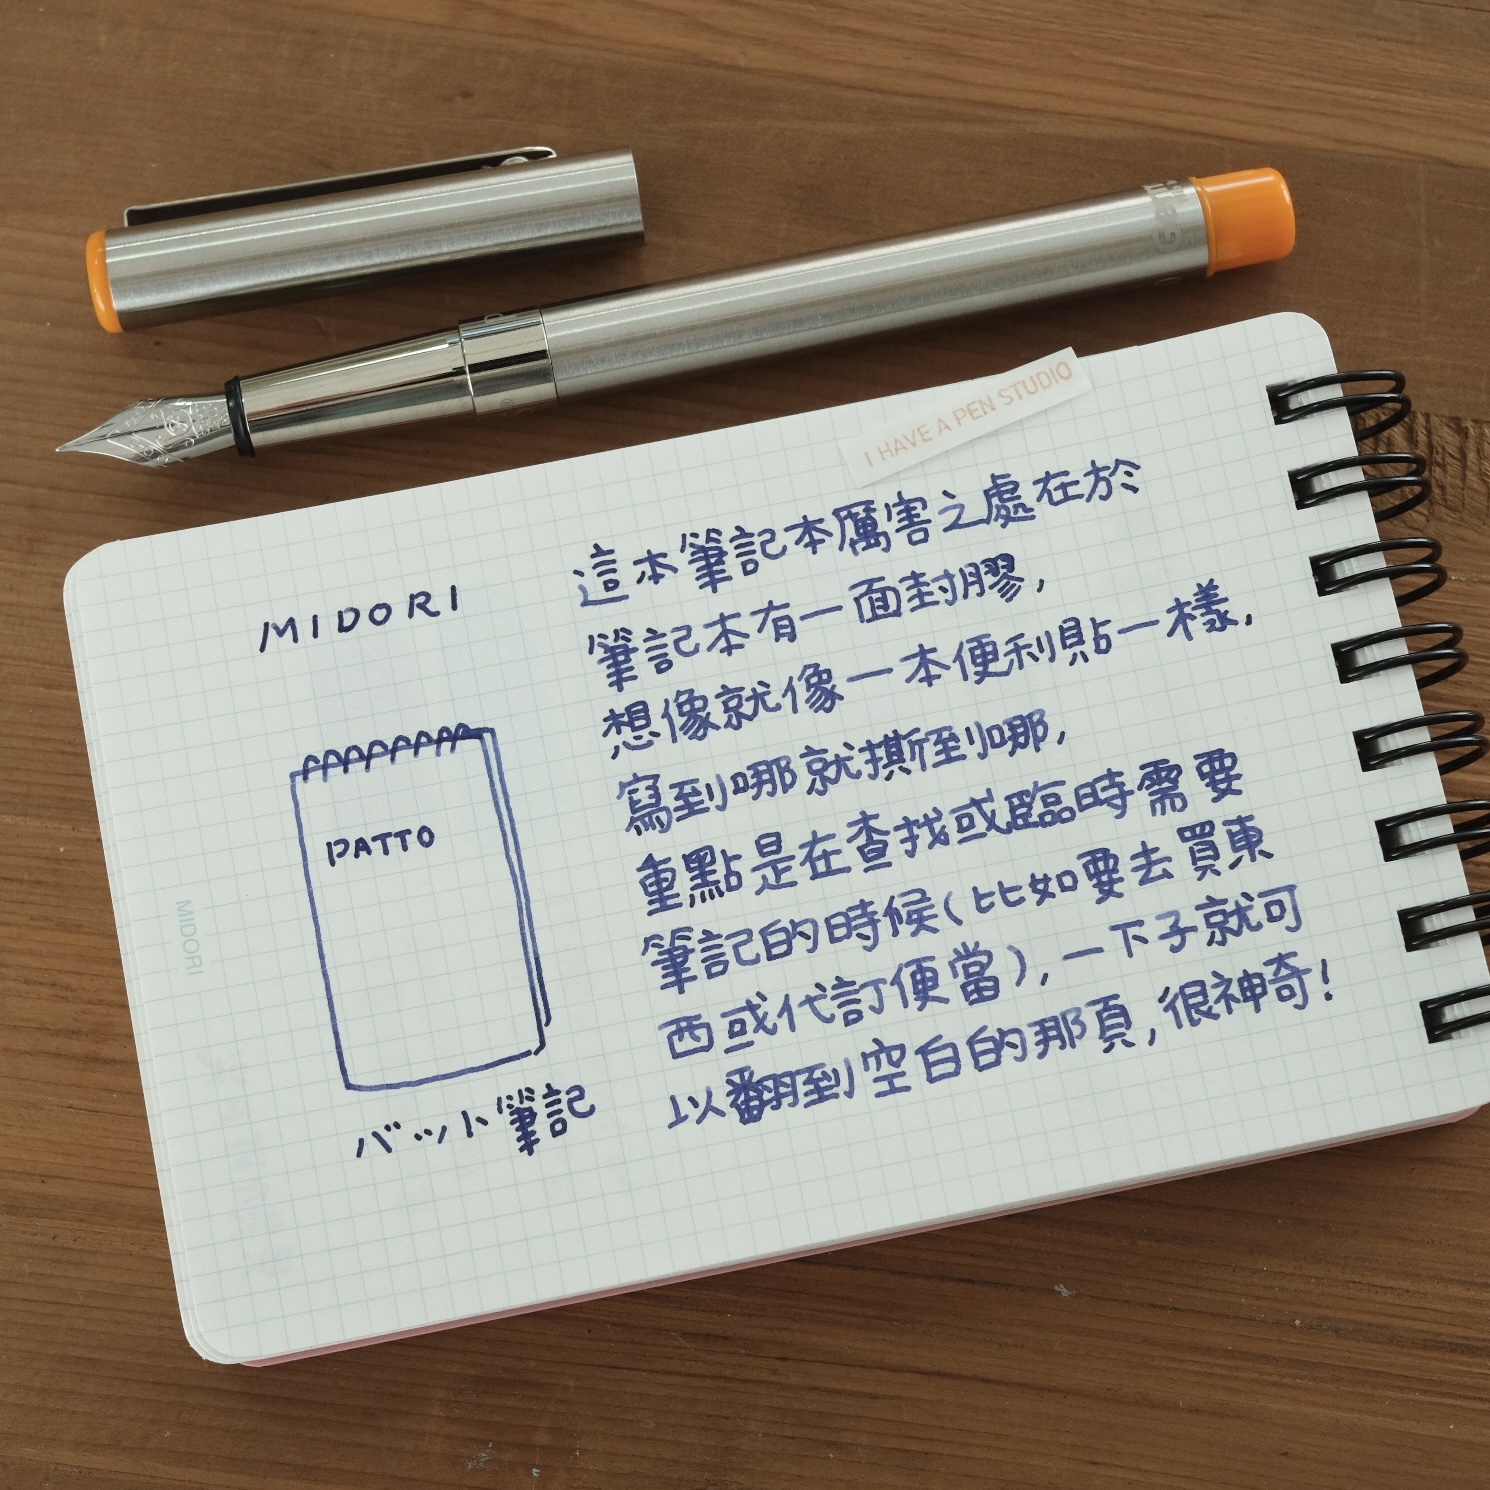 I HAVE A PEN STUDIO
MIDORI
PATTO
パット筆記
MIDORI
這本筆記本厲害之處在於
筆記本有一面封膠,
想像就像一本便利貼一樣,
寫到哪就撕到哪,
重點是在查找或臨時需要
筆記的時候(比如要去買東
西或代訂便當),一下子就可
以翻到空白的那頁,很神奇!